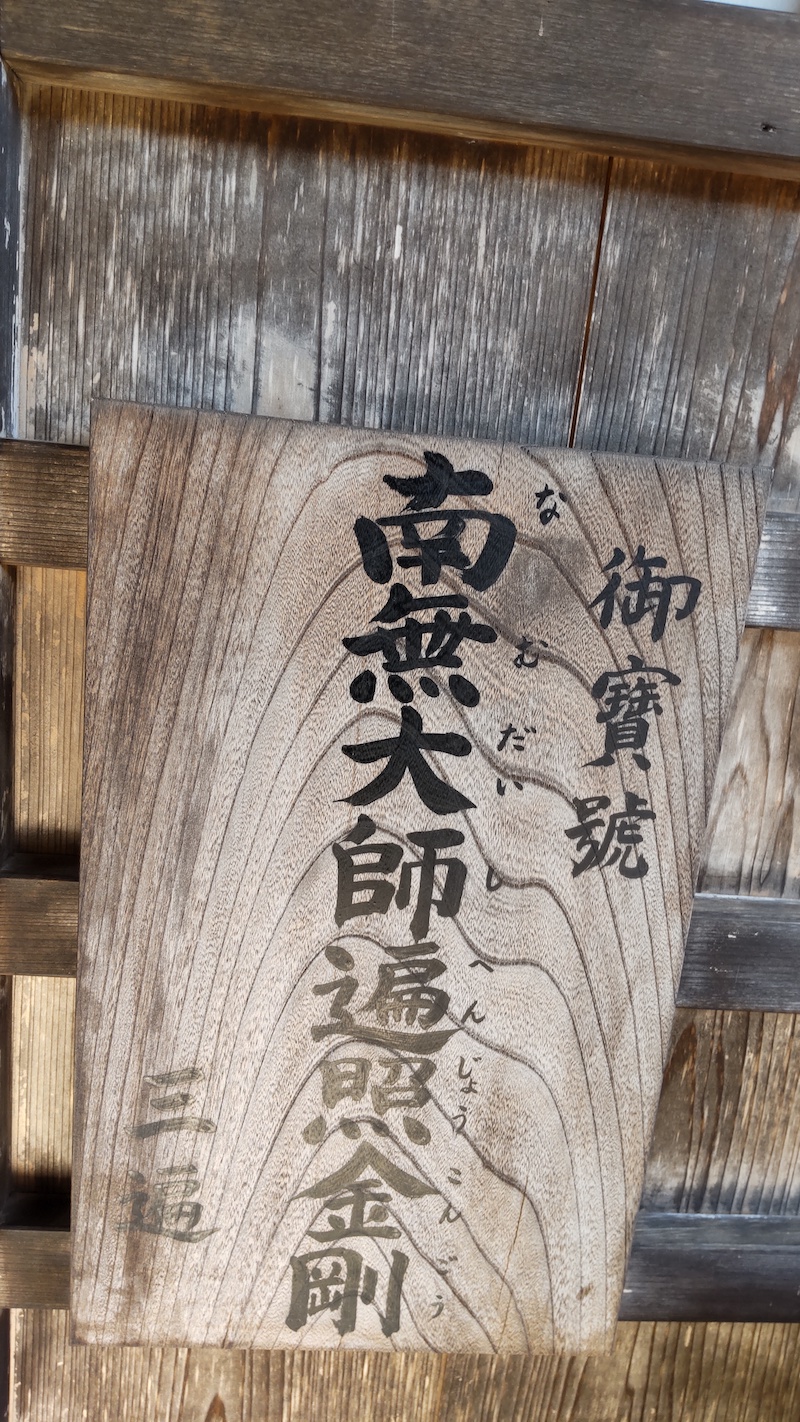 御寶號
南無大師遍照金剛
なむだいしへんじょうこんごう
三遍